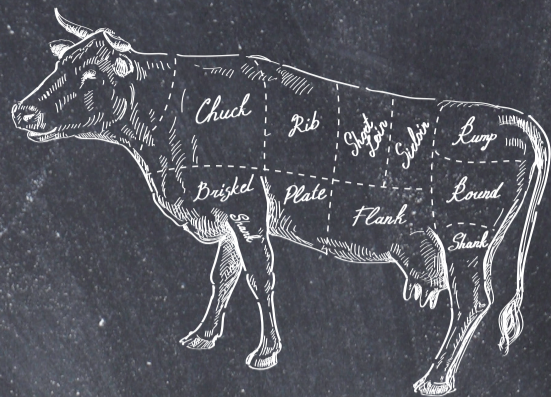 Chuck
Rib
Short
Loin
Sirloin
Rump
Brisket
Shank
Plate
Flank
Round
Shank